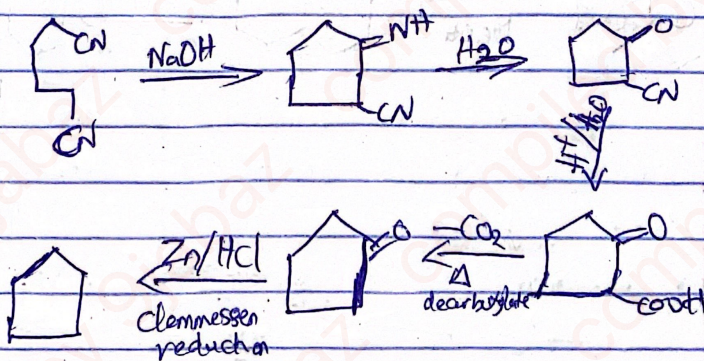 CN
CN
NaOH
NH
CN
H2O
O
CN
H+/H2O
O
COOH
-CO2
Δ
decarboxylate
O
Zn/HCl
Clemmessen
reduction